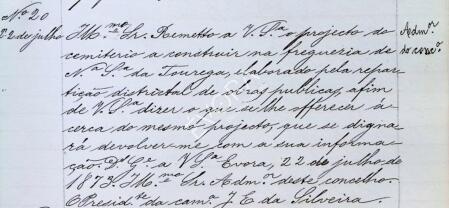 Nº 20
22 de julho
Ill.mo Sr. Remetto a V. S.ª o projecto do
cemiterio a construir na freguezia de
N.ª S.ª da Tourega, elaborado pela repar-
tição districtal de obras publicas, afim
de V. S.ª dizer o que se lhe offerece á-
cerca do mesmo projecto, que se digna-
rá devolver-me com a sua informa-
ção. D.s G.e a V. S.ª Evora, 22 de julho de
1873. Ill.mo Sr. Adm.or deste concelho.
O Presid.te da cam.ª J. E. da Silveira.
Adm.or
do conc.º